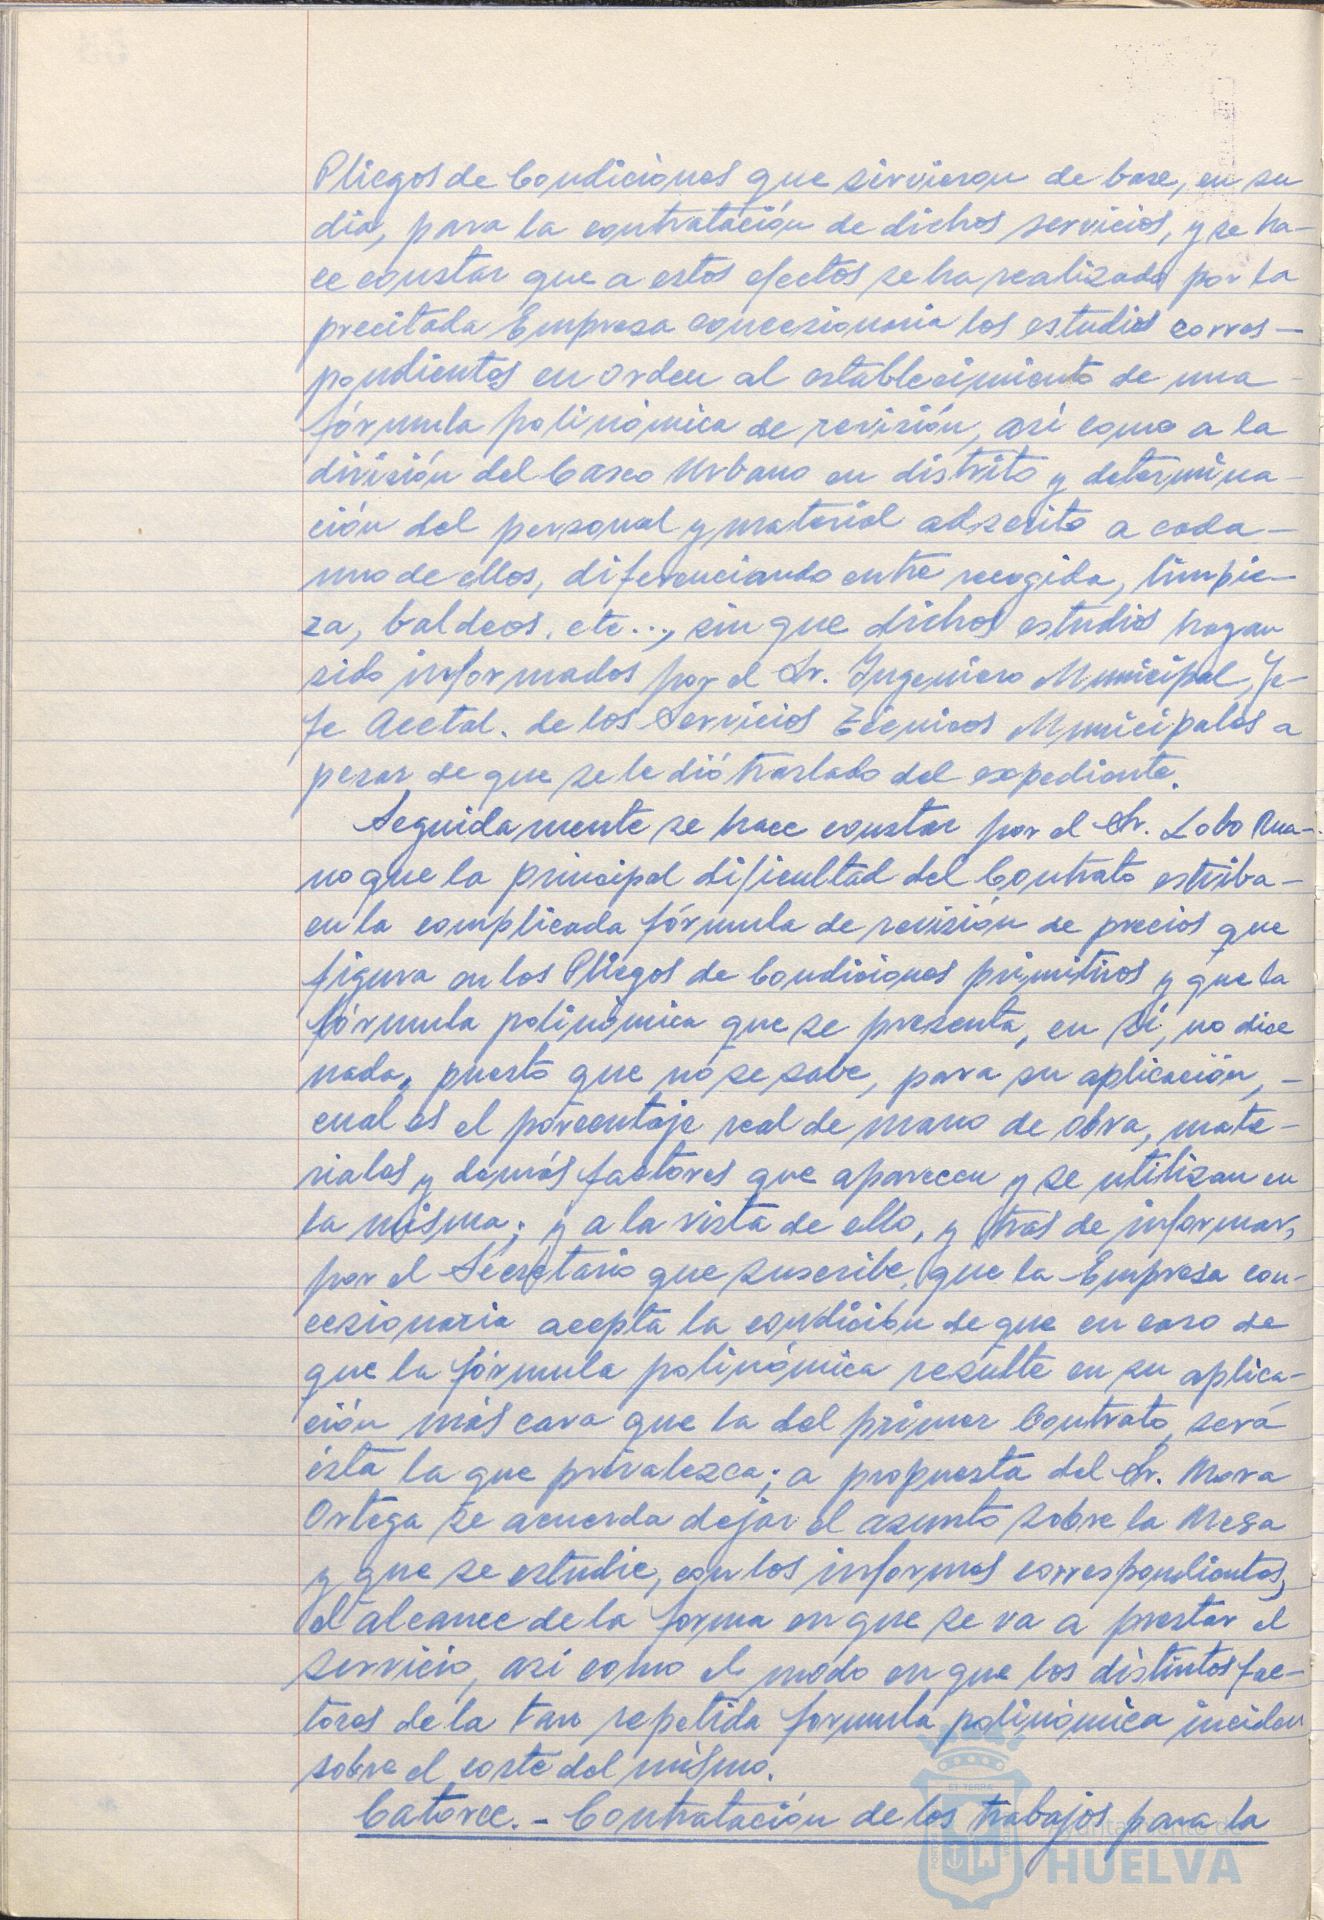 Pliegos de Condiciones que sirvieron de base, en su
dia, para la contratación de dichos servicios, y se ha-
ce constar que a estos efectos se ha realizado por la
precitada Empresa concesionaria los estudios corres-
pondientes en orden al establecimiento de una
fórmula polinómica de revisión, asi como a la
división del Casco Urbano en distrito y determina-
ción del personal y material adscrito a cada-
uno de ellos, diferenciando entre recogida, limpie-
za, baldeos, etc..., sin que dichos estudios hayan
sido informados por el Sr. Ingeniero Municipal, Je-
fe Acctal. de los Servicios Técnicos Municipales a
pesar de que se le dió traslado del expediente.
Seguidamente se hace constar por el Sr. Lobo Rua-
no que la principal dificultad del Contrato estriba-
en la complicada fórmula de revisión de precios que
figura en los Pliegos de Condiciones primitivos y que la
fórmula polinómica que se presenta, en sí, no dice
nada, puesto que no se sabe, para su aplicación, -
cual es el porcentaje real de mano de obra, mate-
riales y demás factores que aparecen y se utilizan en
la misma; y a la vista de ello, y tras de informar,
por el Secretario que suscribe, que la Empresa con-
cesionaria acepta la condición de que en caso de
que la fórmula polinómica resulte en su aplica-
ción más cara que la del primer Contrato, será
ésta la que prevalezca; a propuesta del Sr. Mora
Ortega se acuerda dejar el asunto sobre la Mesa
y que se estudie, con los informes correspondientes,
el alcance de la forma en que se va a prestar el
servicio, asi como el modo en que los distintos fac-
tores de la tan repetida formula polinómica inciden
sobre el coste del mismo.
Catorce.- Contratación de los trabajos para la
Ayuntamiento de
HUELVA